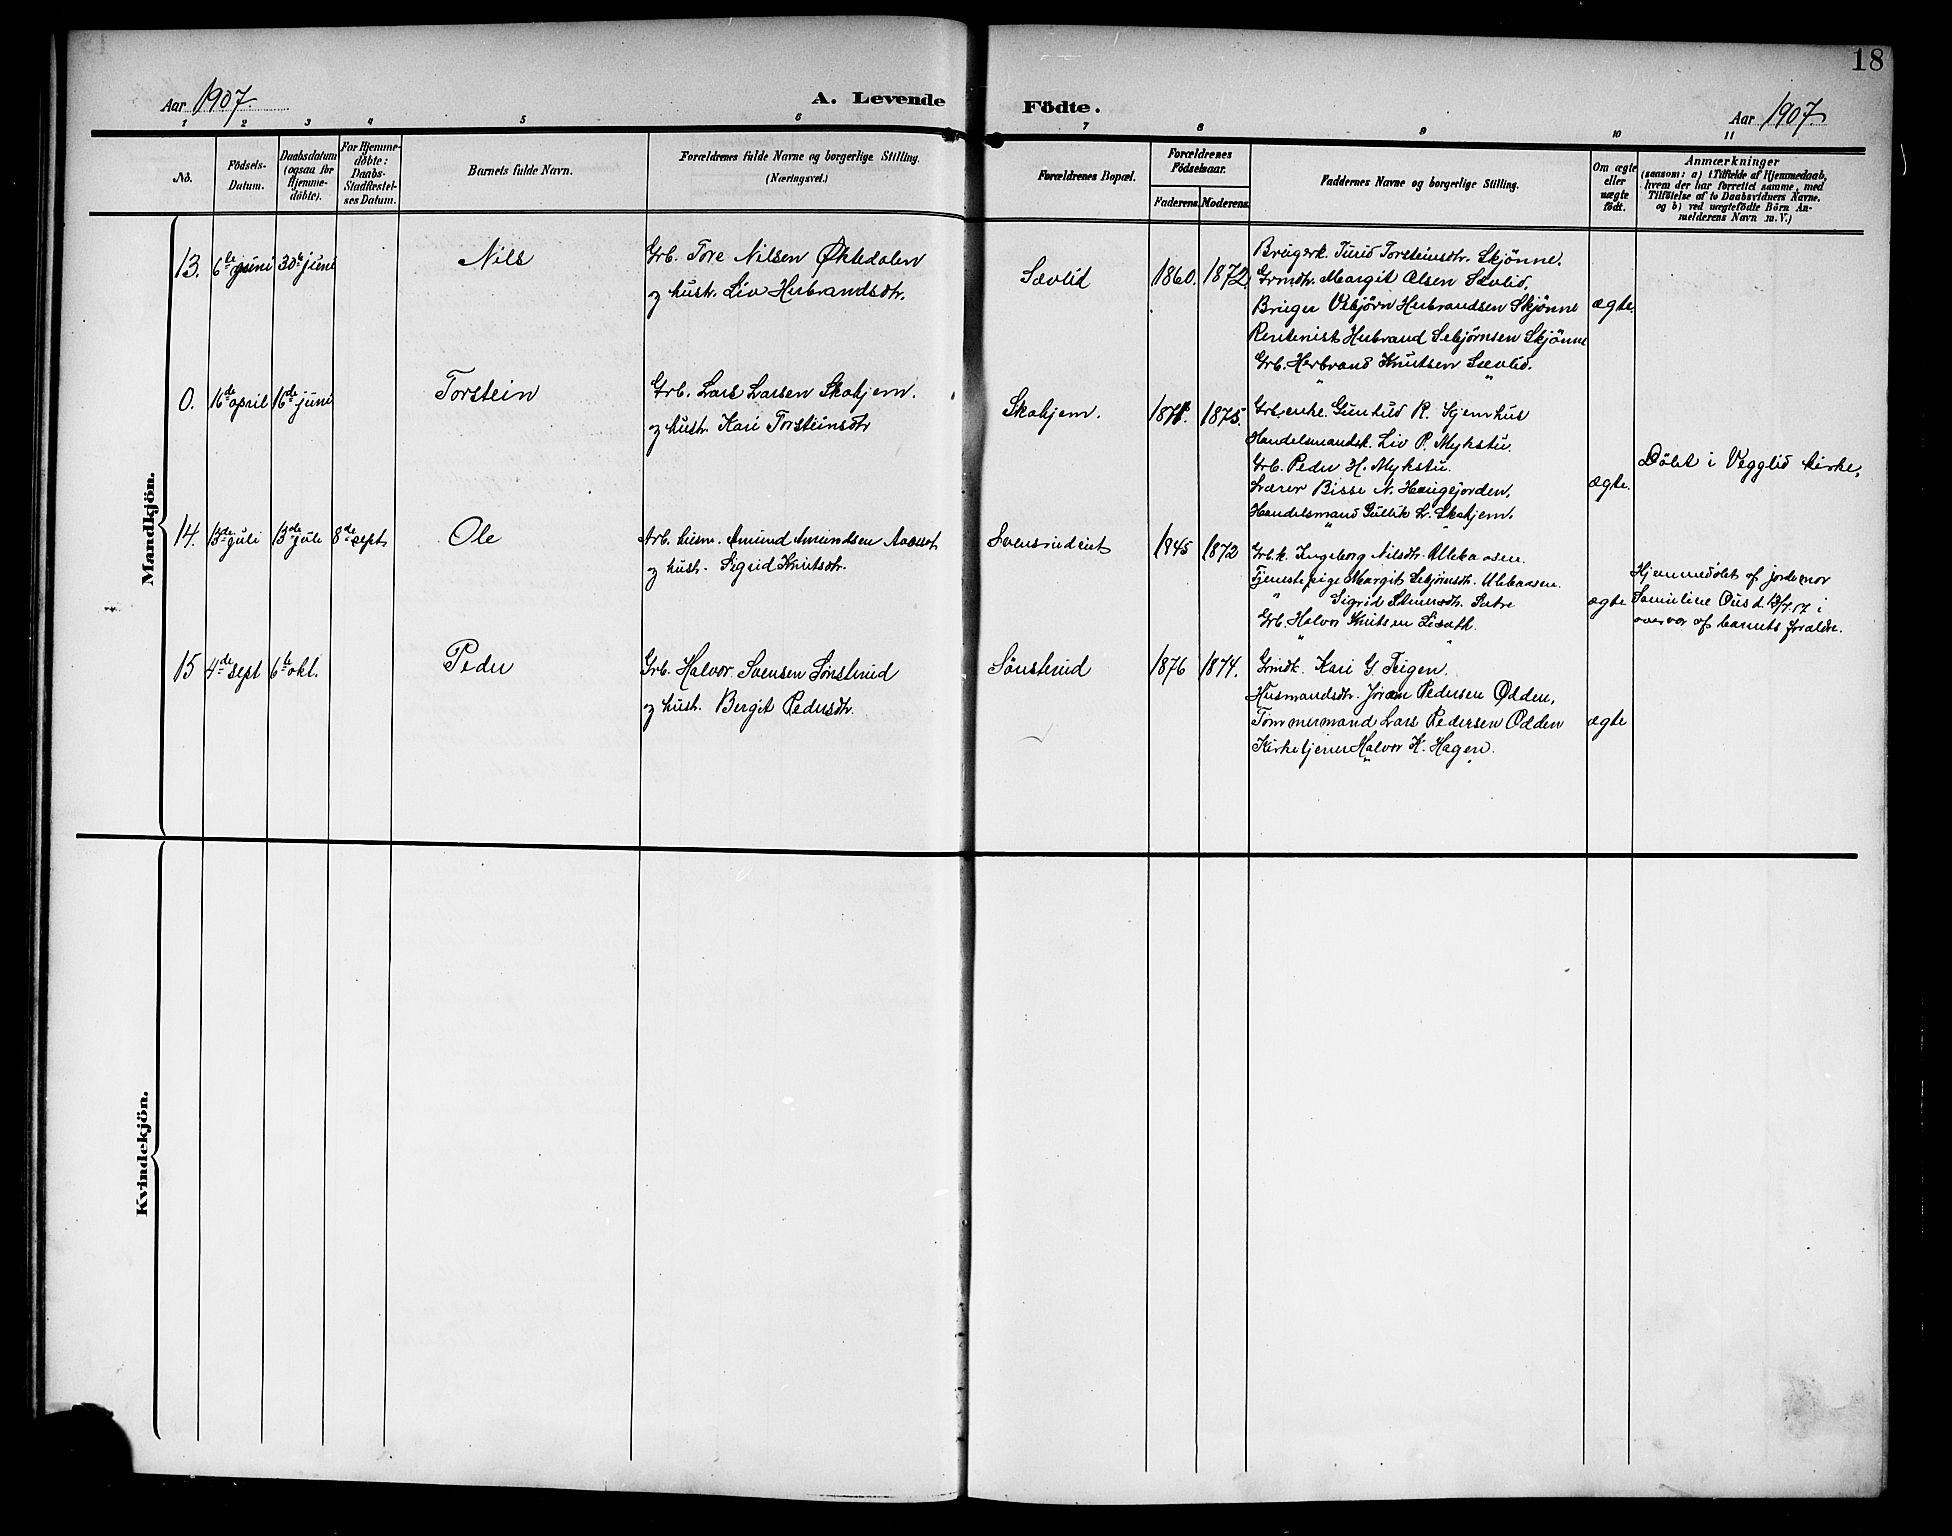 18
Aar 1907.
A. Levende Födte.
Aar 1907.
1 2 3 4 5 6 7 8 9 10 11
No.
Födsels-Datum.
Daabsdatum (ogsaa for Hjemme-døbte).
For Hjemme-döbte: Daabs-Stadfæstel-ses Datum.
Barnets fulde Navn.
Forældrenes fulde Navne og borgerlige Stilling.
(Næringsvei.)
Forældrenes Bopæl.
Forældrenes Födselsaar.
Faderens. Moderens.
Faddernes Navne og borgerlige Stilling.
Om ægte eller uægte födt.
Anmærkninger
(saasom: a) i Tilfælde af Hjemmedaab,
hvem der har forrettet samme, med
Tilföielse af to Daabsvidners Navne,
og b) ved uægtefödte Börn An-
melderens Navn m. V.)
Mandkjön.
13. 6te juni 30te juni Nils
Grb. Tore Nilsen Øktedalen
og hustr. Liv Herbrandsdtr.
Sævlid 1860. 1872
Brugerk. Turid Torsteinsdtr. Skjönne.
Grmdtr. Margit Olsen Sævlid,
Bruger Vebjørn Herbrandsen Skjönne
Rentenist Herbrand Sebjörnsen Skjönne
Grb. Herbrand Knutsen Sævlid.
ægte.
0. 16de april 16de juni Torstein
Grb. Lars Larsen Skahjem.
og hustr. Kari Torsteinsdtr
Skahjem. 1871. 1875.
Grb.enke. Gunhild R. Hjemhus
Handelsmandsk. Liv P. Mykstu.
Grb. Peder H. Mykstu.
Lærer Bisse N. Haugejorden,
Handelsmand Gullik L. Skahjem.
ægte.
Döbt i Vegglid kirke,
14. 13de juli 13de juli 8de sept Ole
Arb. husm. Amund Amundsen
og hustr. Sigrid Knutsdtr.
Svensrudeiet 1845 1872
Grb.k. Ingeborg Nilsdtr. Ulebaasen.
Tjenestepige Margit Sebjörnsdtr. Ulebaasen.
" Sigrid Steinersdtr. Sætre
Grb. Halvor Knutsen Lisæth.
ægte
Hjemmedöbt af jordemor
Samuline Ous d. 13/7.07 i
overvær af barnets forældre.
15 4de sept 6te okt. Peder
Grb. Halvor Svensen Sönsterud
og hustr. Bergit Pedersdtr.
Sönsterud 1876 1874.
Grmdk. Kari G. Teigen.
Husmandsdtr. Jöran Pedersen Odden,
Tömmermand Lars Pedersen Odden
Kirketjener Halvor K. Hagen.
ægte
Kvindekjön.